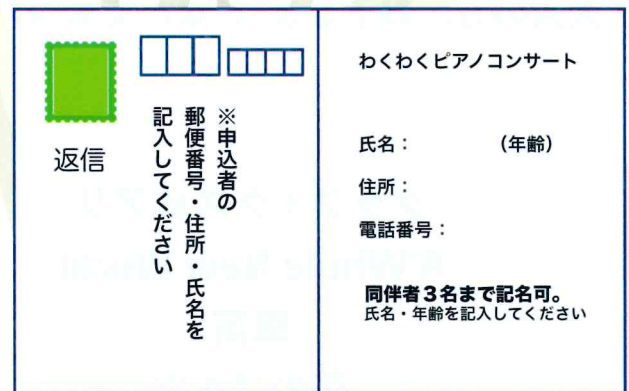 返信
※申込者の
郵便番号・住所・氏名を
記入してください
わくわくピアノコンサート
氏名： （年齢）
住所：
電話番号：
同伴者３名まで記名可。
氏名・年齢を記入してください